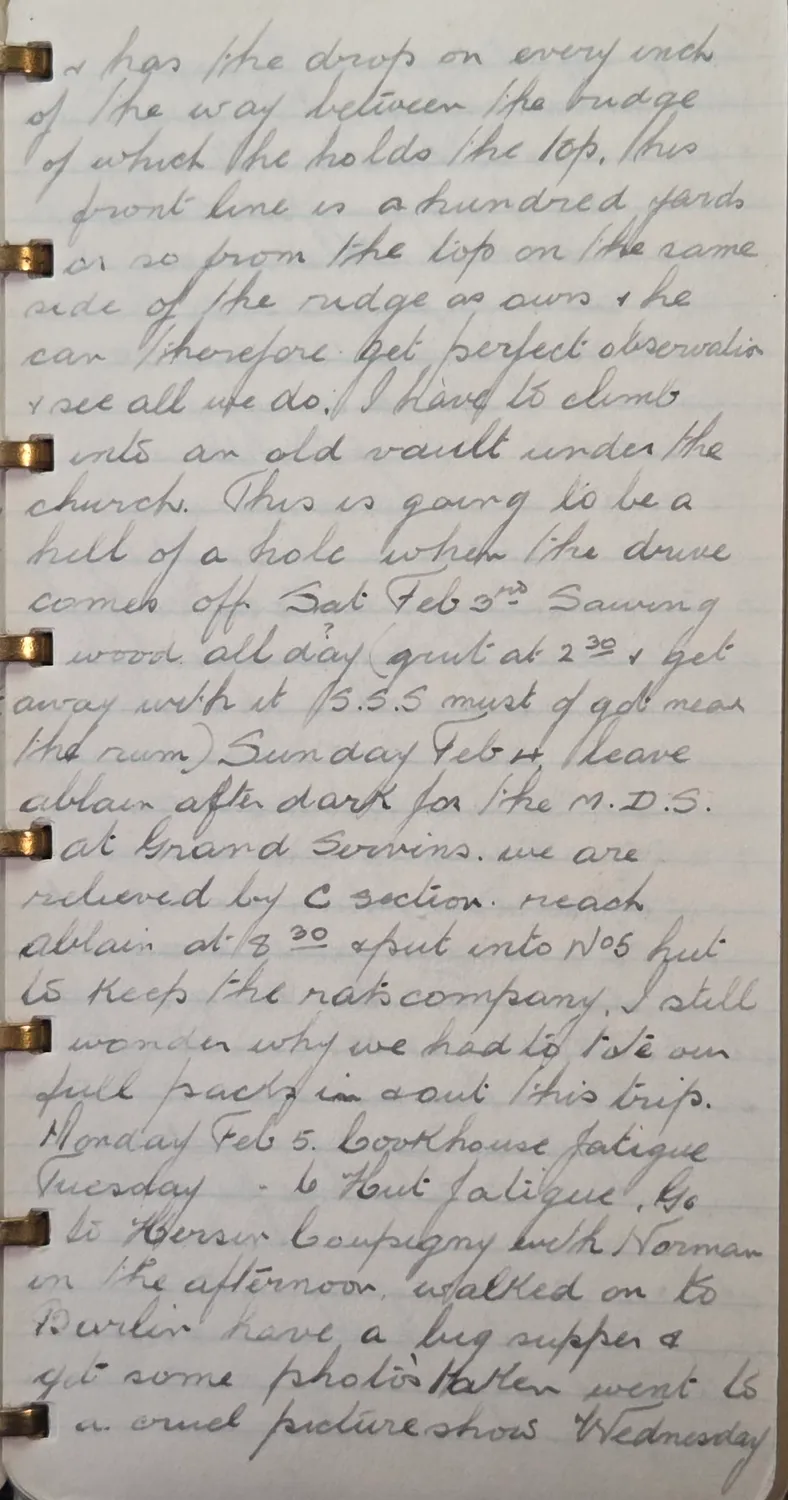 & has the drop on every inch
of the way between the ridge
of which he holds the top. His
front line is a hundred yards
or so from the top on the same
side of the ridge as ours & he
can therefore get perfect observation
& see all we do. I have to climb
into an old vault under the
church. This is going to be a
hell of a hole when the drive
comes off Sat Feb 3rd Sawing
wood all day? (quit at 2 30 & get
away with it (S.S.S must of got near
the rum) Sunday Feb 4, leave
ablain after dark for the M.D.S.
at Grand Servins. we are
relieved by C section. reach
ablain at 8 30 & put into No 5 hut
to keep the rats company. I still
wonder why we had to tote our
full packs in & out this trip.
Monday Feb 5. Cookhouse fatigue
Tuesday - 6 Hut fatigue. Go
to Hersin Coupigny with Norman
in the afternoon. walked on to
Burlin have a big supper &
get some photos taken went to
a cruel picture show Wednesday